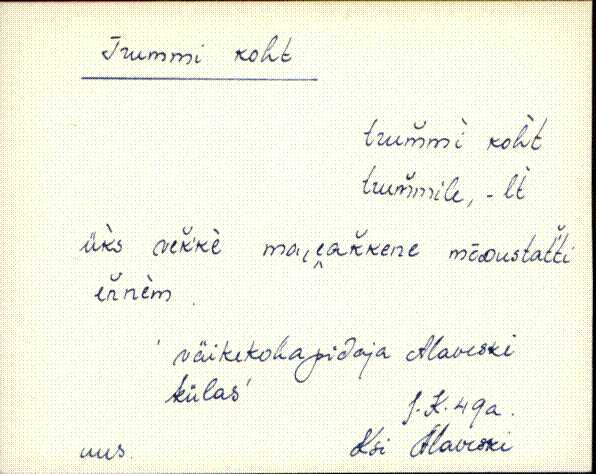 Trummi koht
trum̆mì koh̀t
trum̆mile, -lt̀
ük̀s vek̆kè majeak̆kene mōᴅustat̆ti
en̆nèm.
'väikekohapidaja Alaveski
külas'
J.K. 49a.
uus. Ksi Alaveski